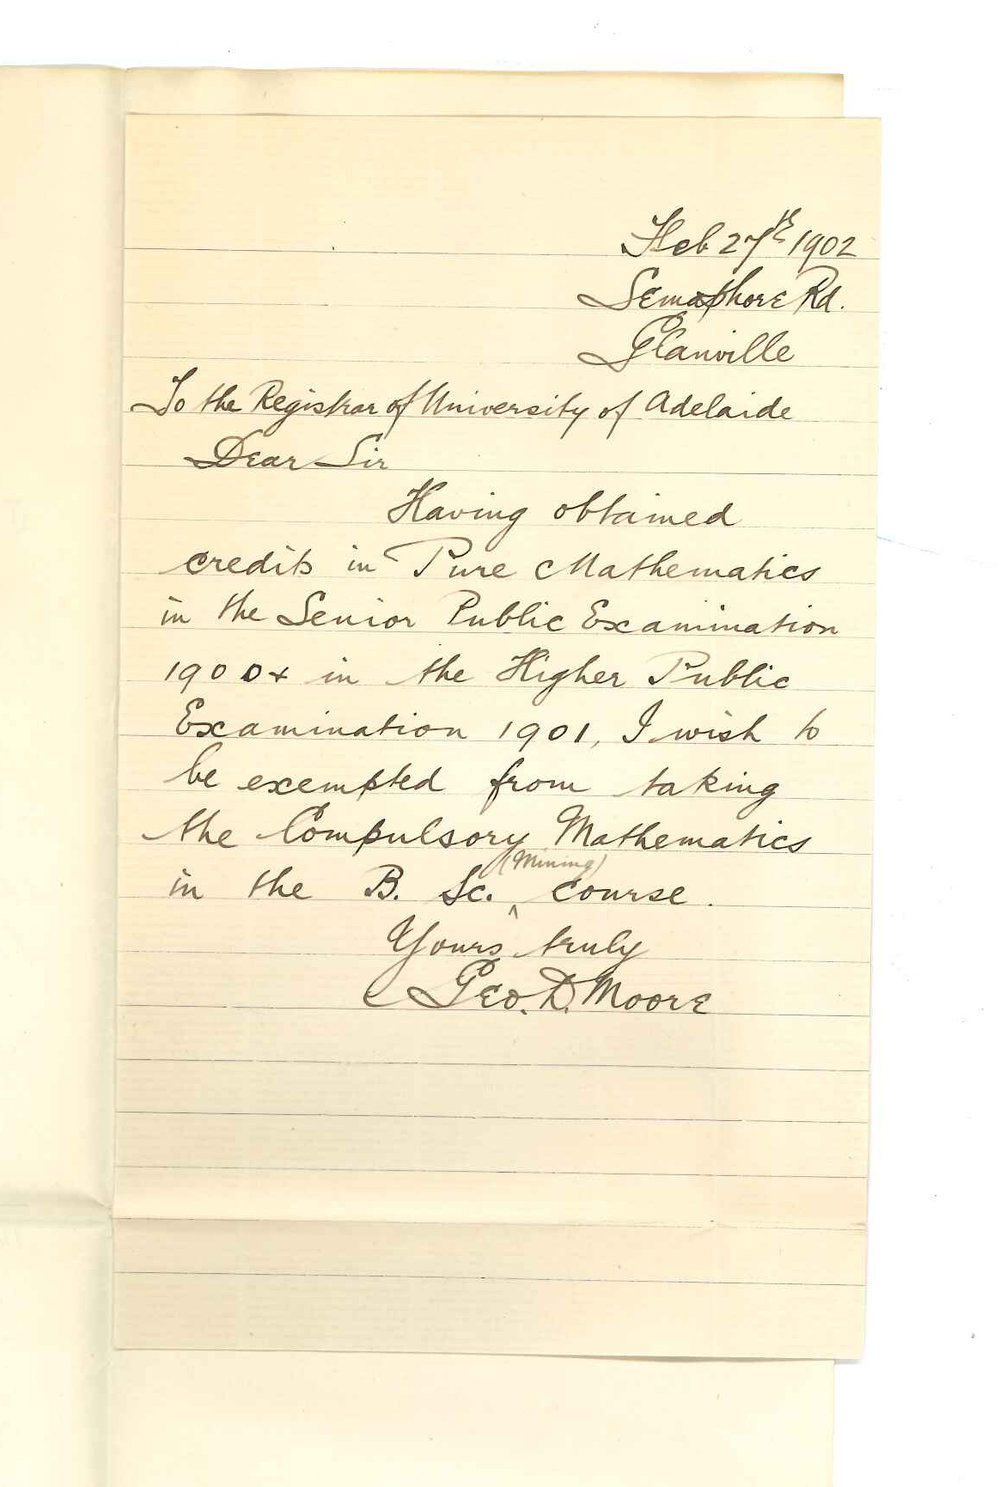 Feb 27th 1902
Semaphore Rd.
Glanville
To the Registrar of University of Adelaide
Dear Sir
Having obtained
credits in Pure Mathematics
in the Senior Public Examination
1900 & in the Higher Public
Examination 1901, I wish to
be exempted from taking
the Compulsory Mathematics
in the B. Sc. (Mining) course.
Yours truly
Geo. D. Moore